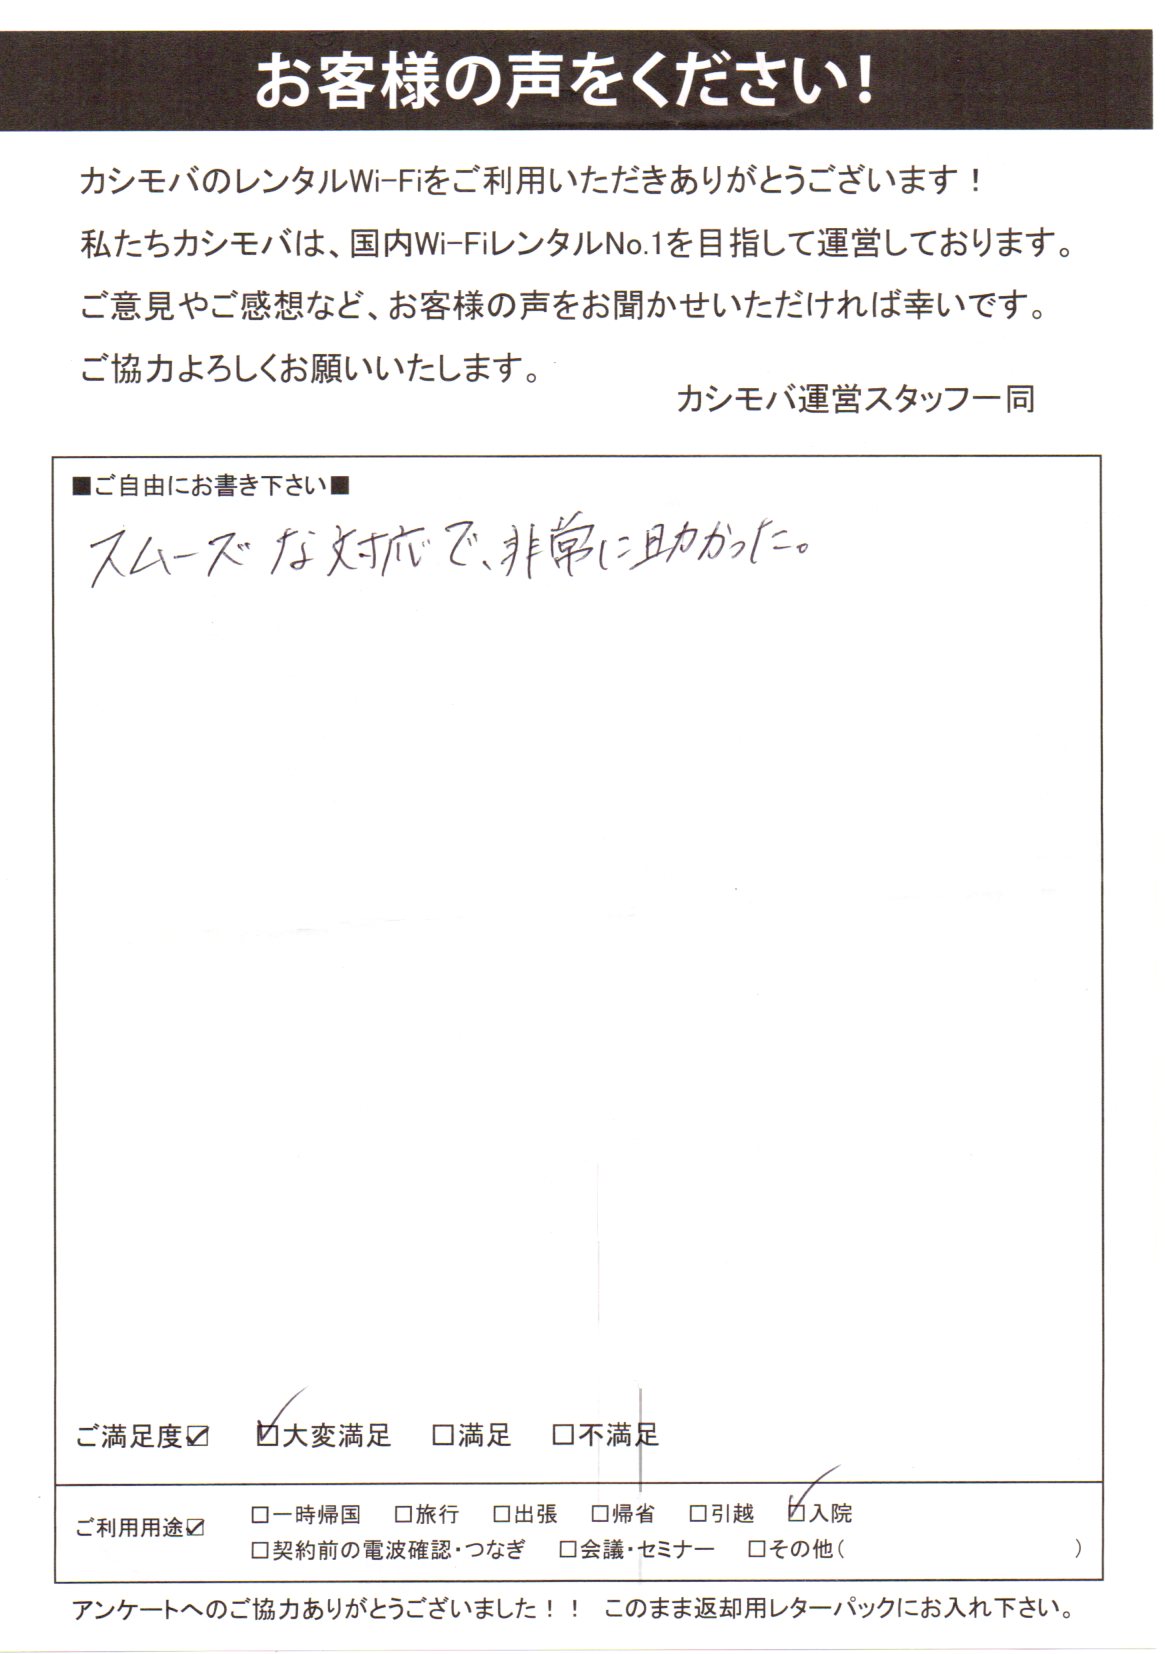 お客様の声をください!
カシモバのレンタルWi-Fiをご利用いただきありがとうございます!
私たちカシモバは、国内Wi-FiレンタルNo.1を目指して運営しております。
ご意見やご感想など、お客様の声をお聞かせいただければ幸いです。
ご協力よろしくお願いいたします。
カシモバ運営スタッフ一同
■ご自由にお書き下さい■
スムーズな対応で、非常に助かった。
ご満足度☑ ☑大変満足 □満足 □不満足
ご利用用途☑ □一時帰国 □旅行 □出張 □帰省 □引越 ☑入院
□契約前の電波確認・つなぎ □会議・セミナー □その他( )
アンケートへのご協力ありがとうございました!! このまま返却用レターパックにお入れ下さい。